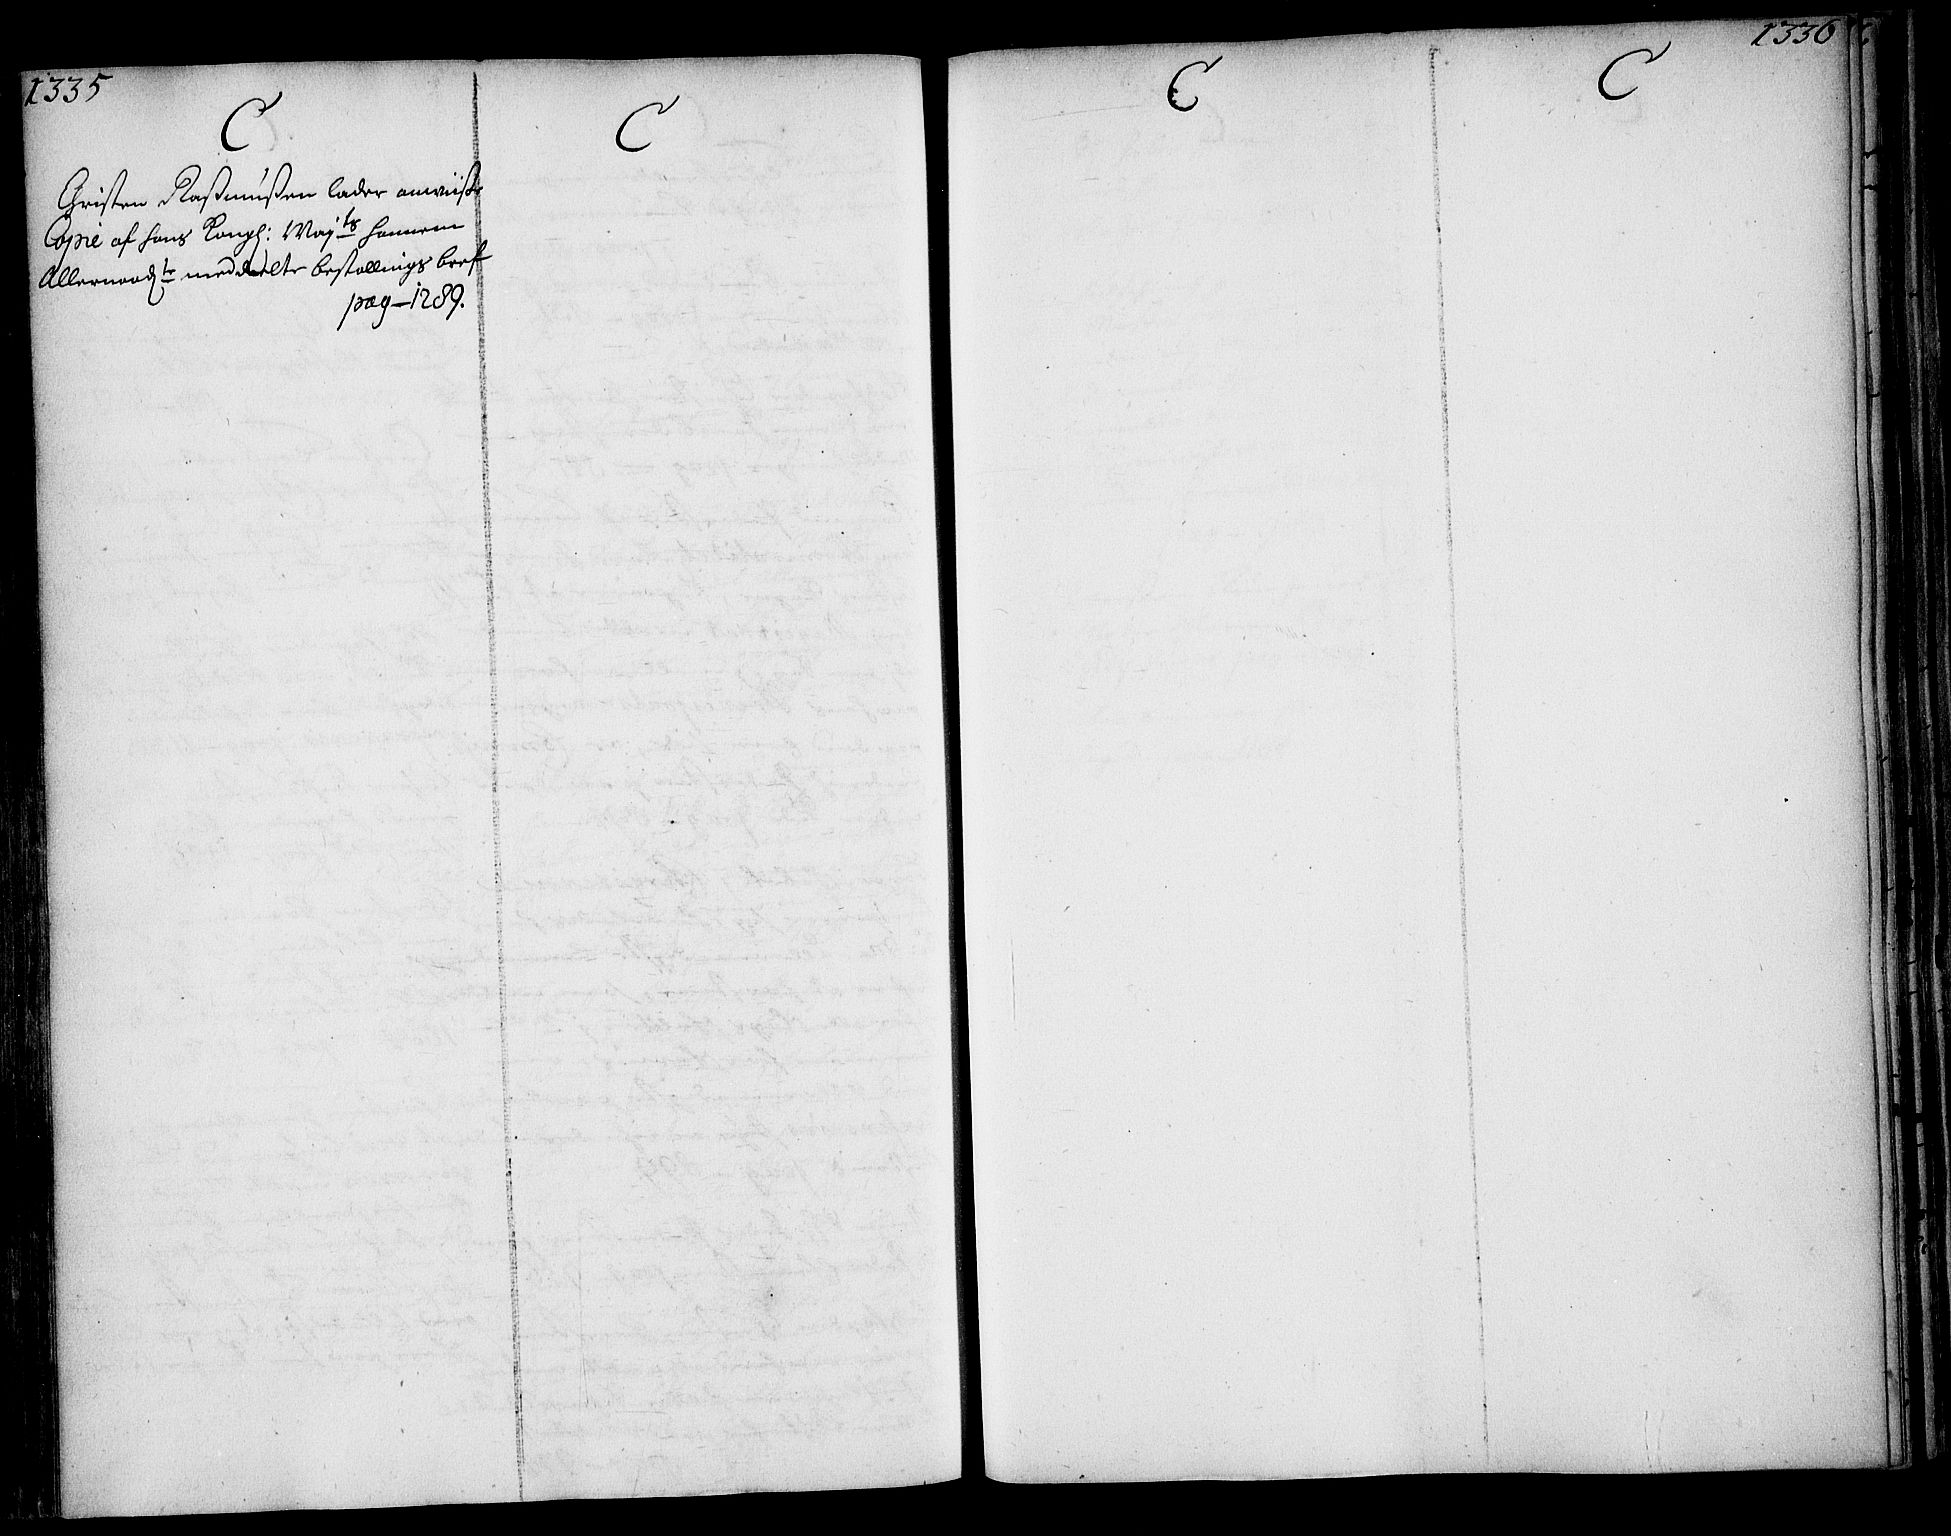 1335
C
C
Christen Rasmussen lader anviise
Copie af hans Kongl: Maj:ts hannem
Allernaadte meddeelte bestallings bref
pag-1289.
1336
C
C